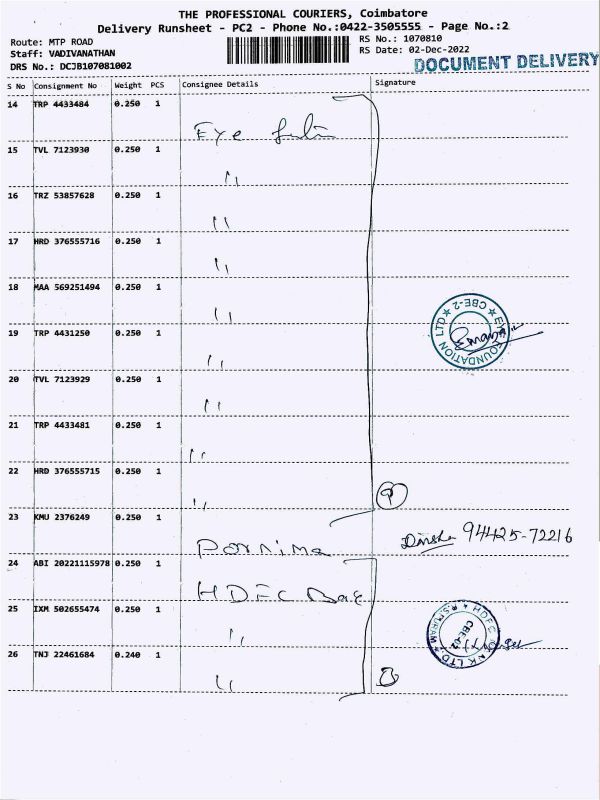 THE PROFESSIONAL COURIERS, Coimbatore
Delivery Runsheet - PC2 - Phone No.:0422-3505555 - Page No.:2
Route: MTP ROAD RS No.: 1070810
Staff: VADIVANATHAN RS Date: 02-Dec-2022
DRS No.: DCJB107081002 DOCUMENT DELIVERY
S No Consignment No Weight PCS Consignee Details Signature
14 TRP 4433484 0.250 1
Eye
15 TVL 7123930 0.250 1
"
16 TRZ 53857628 0.250 1
"
17 HRD 376555716 0.250 1
"
18 MAA 569251494 0.250 1
"
CBE-2 ★ EYE FOUNDATION LTD ★
19 TRP 4431250 0.250 1
"
20 TVL 7123929 0.250 1
"
21 TRP 4433481 0.250 1
"
22 HRD 376555715 0.250 1
" 9
23 KMU 2376249 0.250 1
Pornima 94425-72216
24 ABI 20221115978 0.250 1
HDFC
25 IXM 502655474 0.250 1
"
★ HDFC BANK LTD ★ R.S.PURAM
26 TNJ 22461684 0.240 1
"